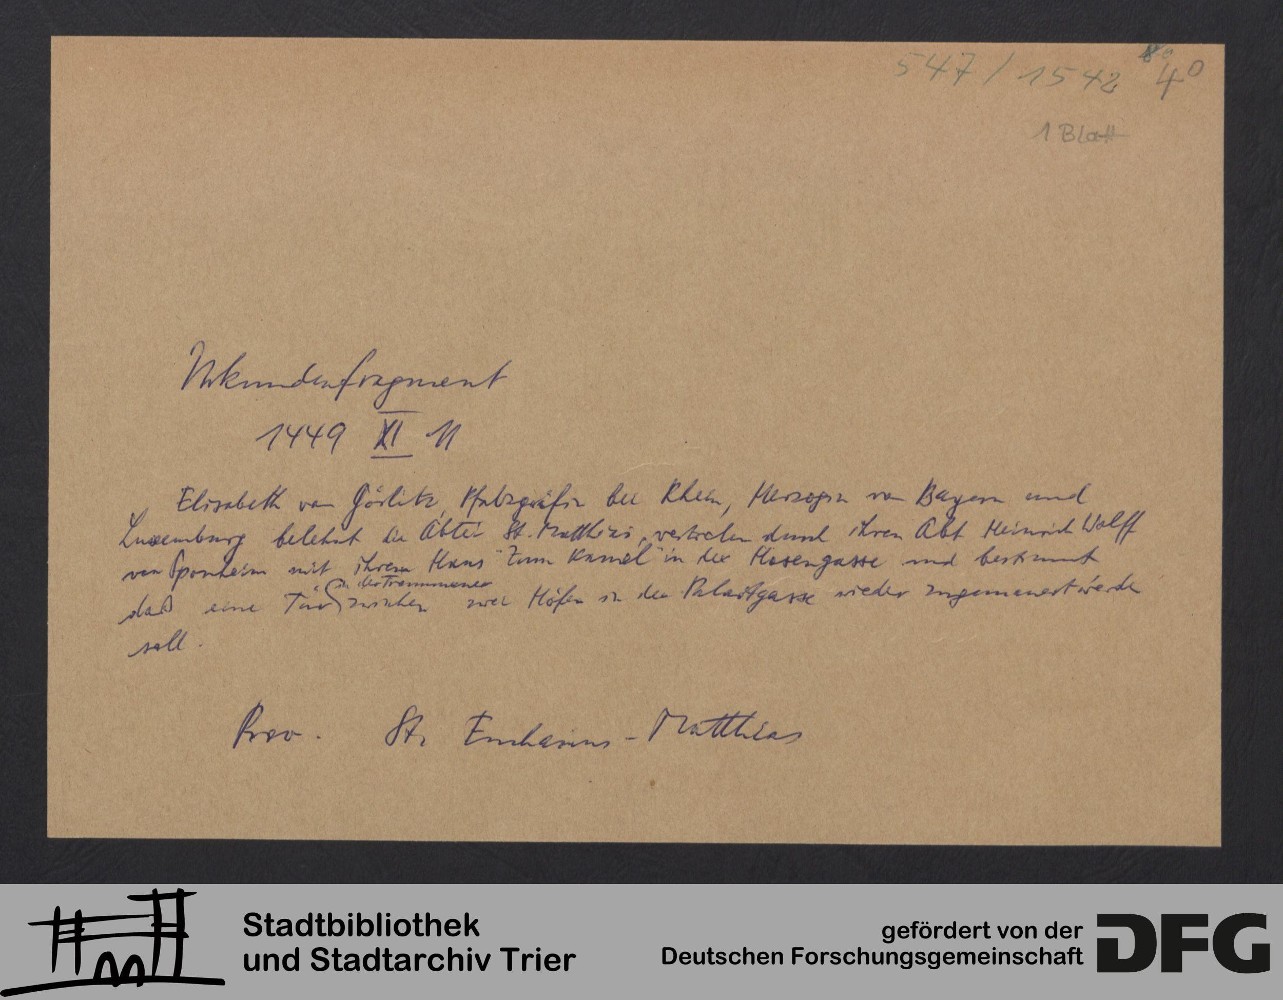 547/1542 8° 4°
1 Blatt
Urkundenfragment
1449 XI 11
Elisabeth von Görlitz, Pfalzgräfin bei Rhein, Herzogin von Bayern und
Luxemburg belehnt die Abtei St. Matthias, vertreten durch ihren Abt Heinrich Wolff
von Sponheim mit ihrem Haus "Zum Kamel" in der Hosengasse und bestimmt
daß eine Tür in der Trennmauer zwischen zwei Höfen in der Palastgasse wieder zugemauert werden
soll.
Prov. St. Eucharius-Matthias
Stadtbibliothek
und Stadtarchiv Trier
gefördert von der
Deutschen Forschungsgemeinschaft
DFG